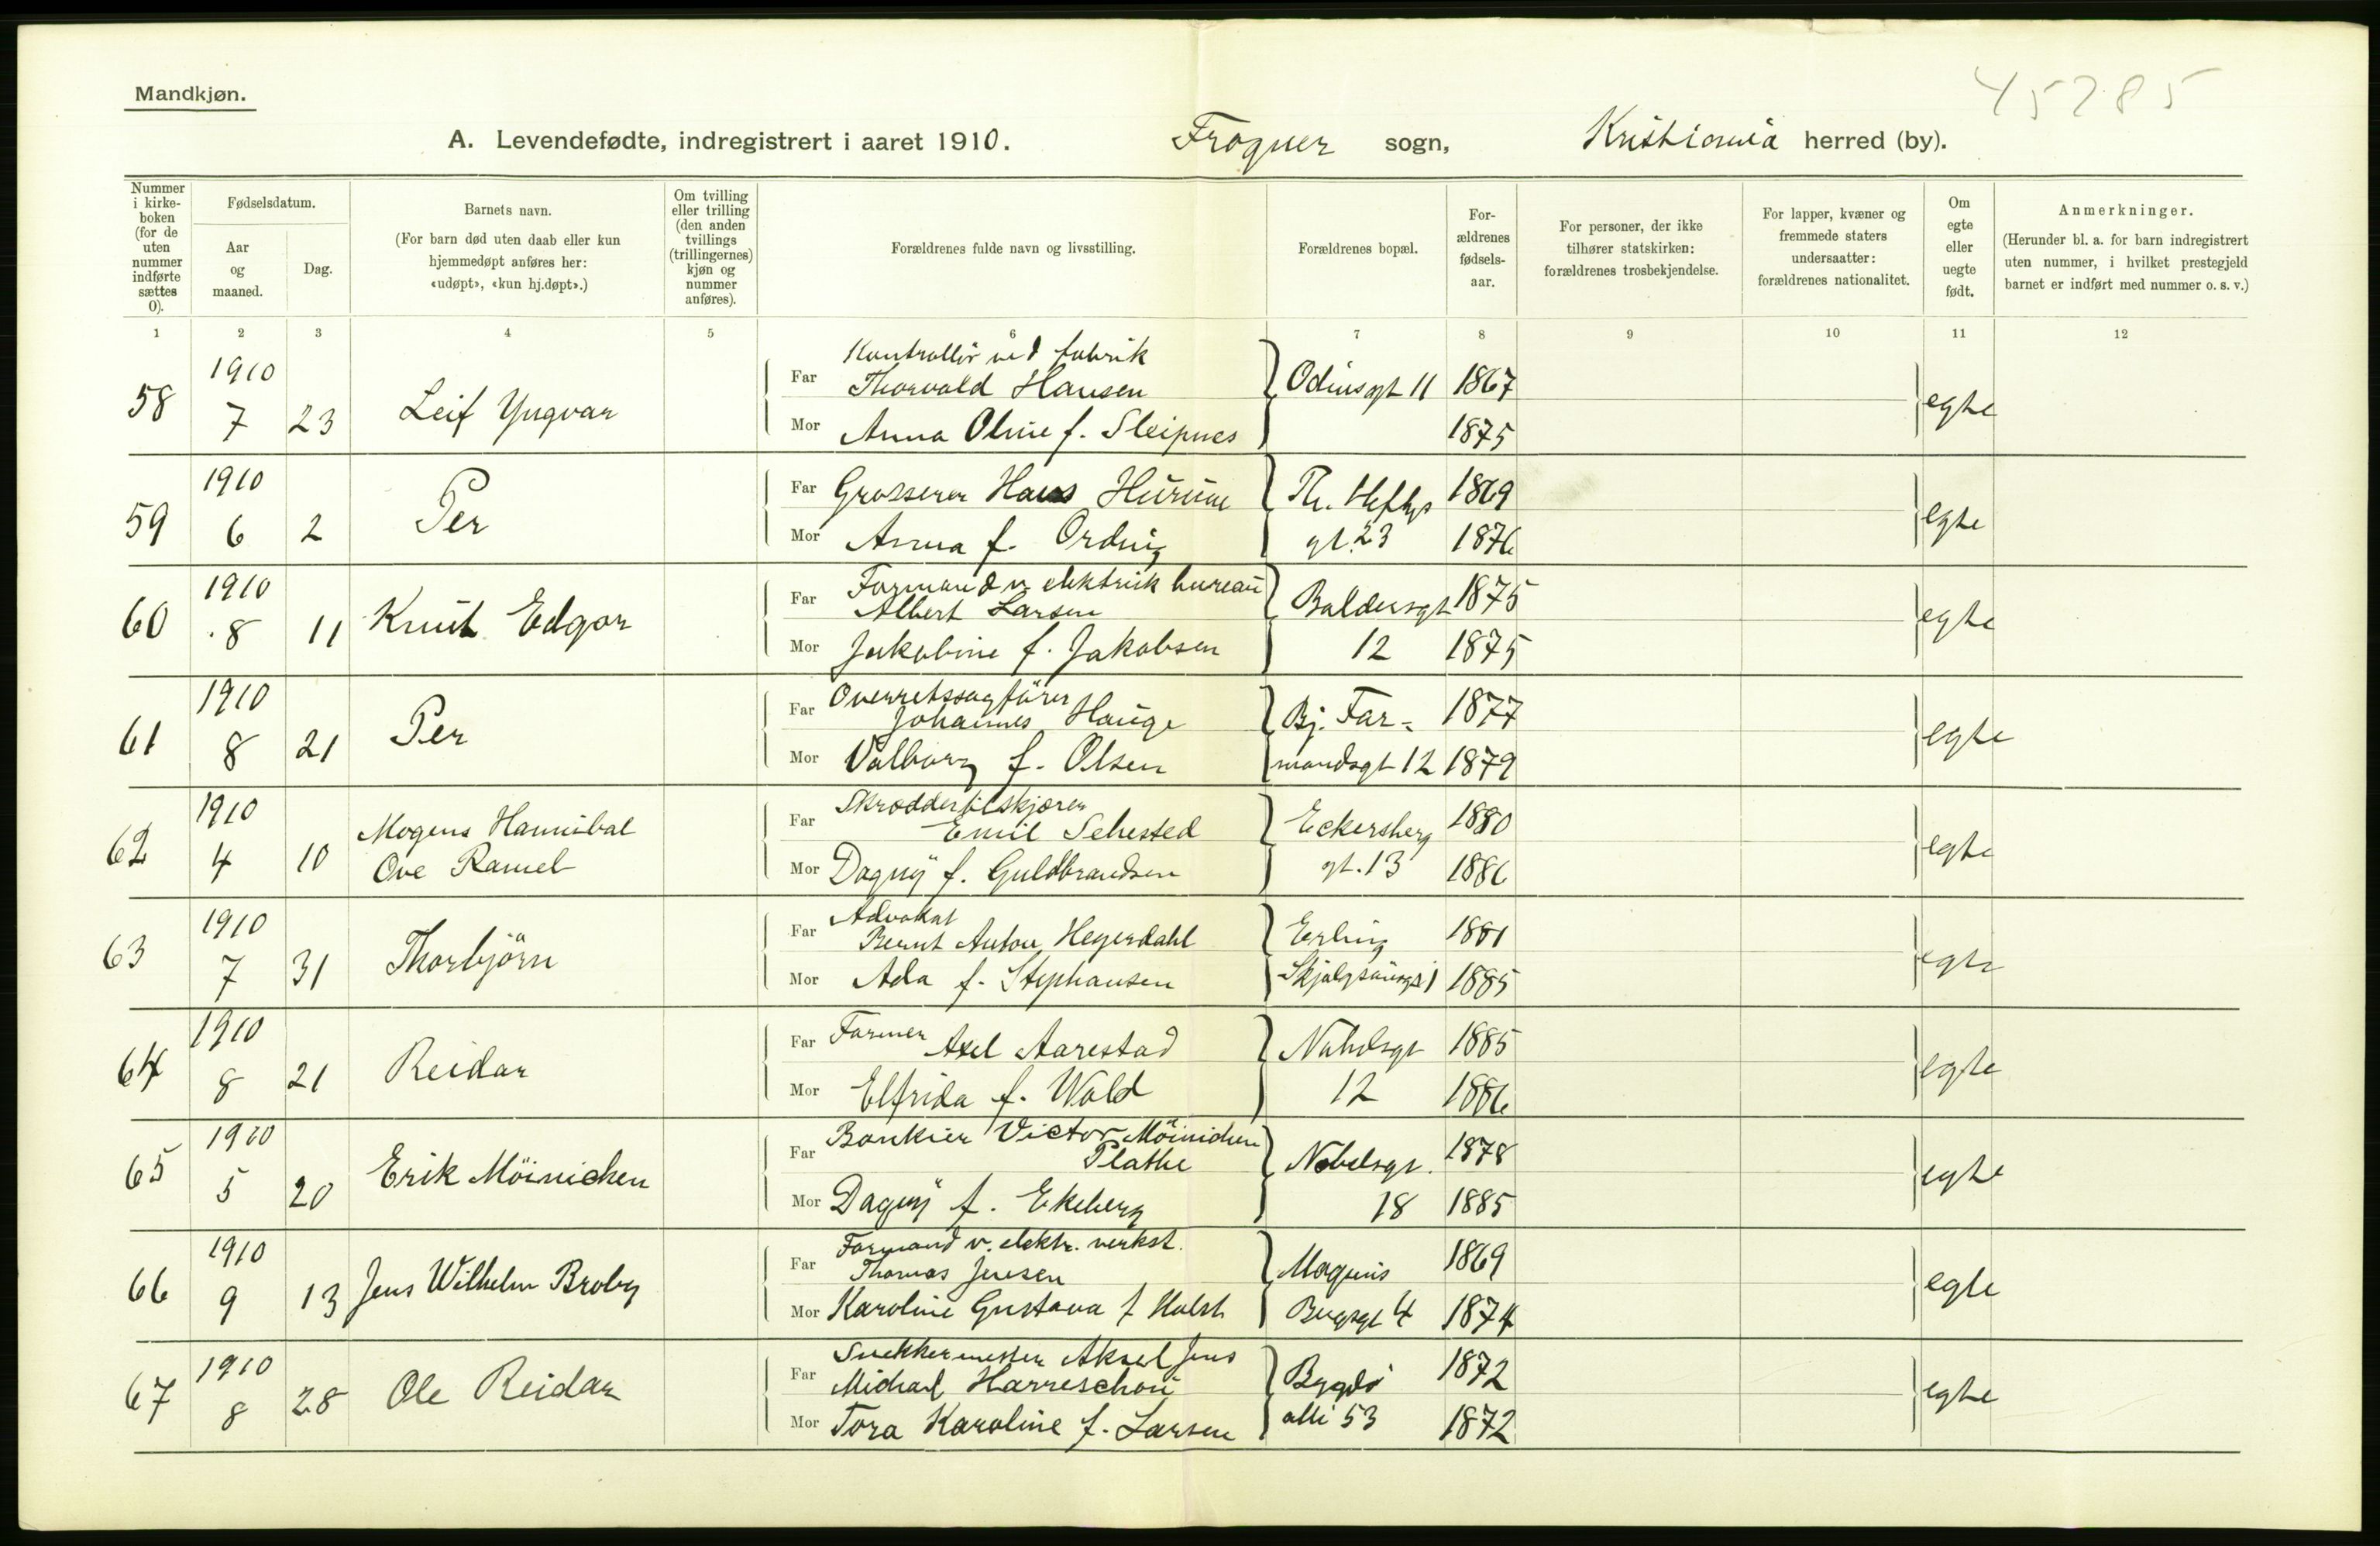 45285
Mandkjøn.
A. Levendefødte, indregistrert i aaret 1910. Frogner sogn, Kristiania herred (by).
Nummer i kirkeboken (for de uten nummer indførte sættes 0).
Fødselsdatum.
Aar og maaned.
Dag.
Barnets navn.
(For barn død uten daab eller kun hjemmedøpt anføres her: «udøpt», «kun hj.døpt».)
Om tvilling eller trilling (den anden tvillings (trillingernes) kjøn og nummer anføres).
Forældrenes fulde navn og livsstilling.
Forældrenes bopæl.
Forældrenes fødselsaar.
For personer, der ikke tilhører statskirken: forældrenes trosbekjendelse.
For lapper, kvæner og fremmede staters undersaatter: forældrenes nationalitet.
Om egte eller uegte født.
Anmerkninger.
(Herunder bl. a. for barn indregistrert uten nummer, i hvilket prestegjeld barnet er indført med nummer o. s. v.)
1 2 3 4 5 6 7 8 9 10 11 12
58 1910 7 23 Leif Yngvar
Far Kontrollör ved fabrik
Thorvald Hansen Odinsgt 11 1867
Mor Anna Oline f. Sleipnes 1875 egte
59 1910 6 2 Per
Far Grosserer Hans Hurum Th. Heftys 1869
Mor Anna f. Ording gt. 23 1876 egte
60 1910 8 11 Knut Edgar
Far Formand v. elektrisk bureau
Albert Larsen Baldersgt 1875
Mor Jakobine f. Jakobsen 12 1875 egte
61 1910 8 21 Per
Far Overretssagförer
Johannes Hauge Bj. Far- 1877
Mor Valborg f. Olsen mandsgt 12 1879 egte
62 1910 4 10 Mogens Hannibal
Ove Ramel
Far Skræddertilskjærer
Emil Sehested Eckersberg 1880
Mor Dagny f. Guldbrandsen gt. 13 1886 egte
63 1910 7 31 Thorbjörn
Far Advokat
Bernt Anton Heyerdahl Erling 1881
Mor Ada f. Stephansen 1885 egte
64 1910 8 21 Reidar
Far Farmer Axel Aarestad Nobelsgt 1885
Mor Elfrida f. Wold 12 1886 egte
65 1910 5 20 Erik Möinichen
Far Bankier Victor Möinichen
Plathe Nobelsgt. 1878
Mor Dagny f. Ekeberg 18 1885 egte
66 1910 9 13 Jens Wilhelm Broby
Far Formand v. elektr. verkst.
Thomas Jensen Magnus 1869
Mor Karoline Gustava f Holst Bergsgt 4 1874 egte
67 1910 8 28 Ole Reidar
Far Snekkermester Aksel Jens
Michael Harreschou Bygdö 1872
Mor Tora Karoline f. Larsen alle 53 1872 egte